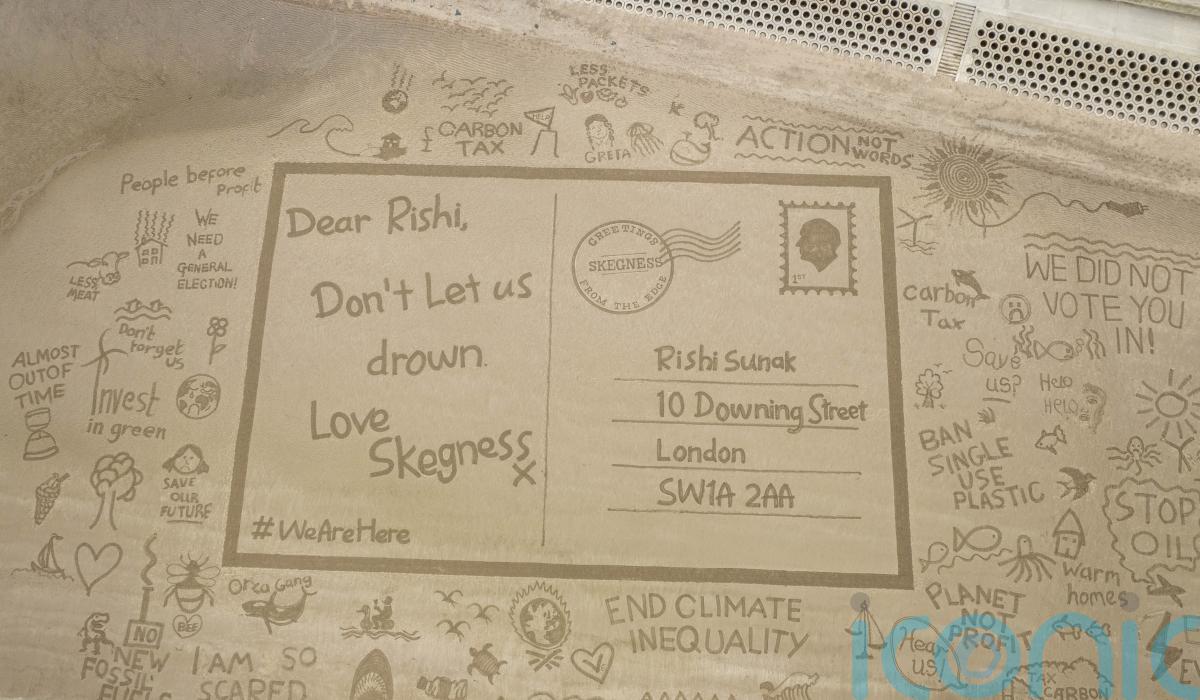 LESS
PACKETS
HELP
£ CARBON
TAX
GRETA
ACTION NOT
WORDS
People before
Profit
WE
NEED
A
GENERAL
ELECTION!
LESS
MEAT
Don't
forget
us
ALMOST
OUT OF
TIME
Invest
in green
SAVE
OUR
FUTURE
Dear Rishi,
Don't Let us
drown.
Love
Skegness
x
#WeAreHere
GREETINGS
SKEGNESS
FROM THE EDGE
1ST
Rishi Sunak
10 Downing Street
London
SW1A 2AA
WE DID NOT
VOTE YOU
IN!
carbon
Tax
Save
us?
Help
HELP
BAN
SINGLE
USE
PLASTIC
STOP
OIL
warm
homes
Orca Gang
BEE
NO
NEW
FOSSIL
FUELS
I AM SO
SCARED
END CLIMATE
INEQUALITY
PLANET
NOT
PROFIT
Hear
us!
TAX
CARBON
iconic